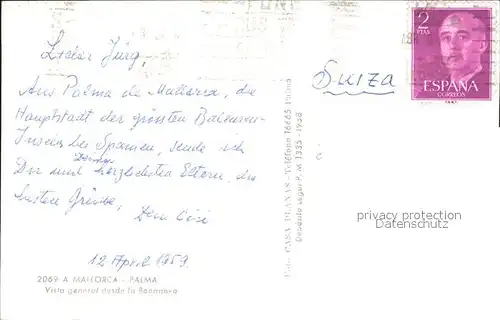 2
PTAS
ESPAÑA
CORREOS
Lieber Jürg,
Suiza
Aus Palma de Mallorca, die
Hauptstadt der grössten Balearen-
Inseln bei Spanien, sende ich
Dir und Deinen herzliebsten Eltern, die
besten Grüsse,
Dein
12 April 1959.
2069-A MALLORCA - PALMA
Vista general desde la Bonanova
CASA PLANAS - Teléfono 16665 Palma
Depósito legal P. M. 1335 - 1958
privacy protection
Datenschutz